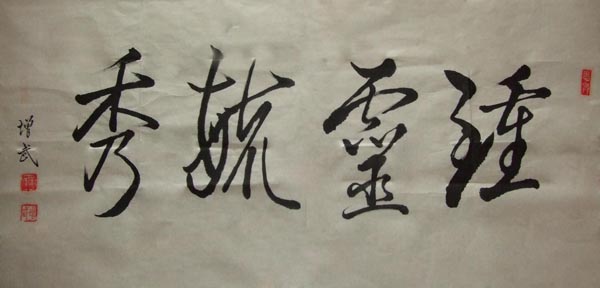 鍾靈毓秀
增武